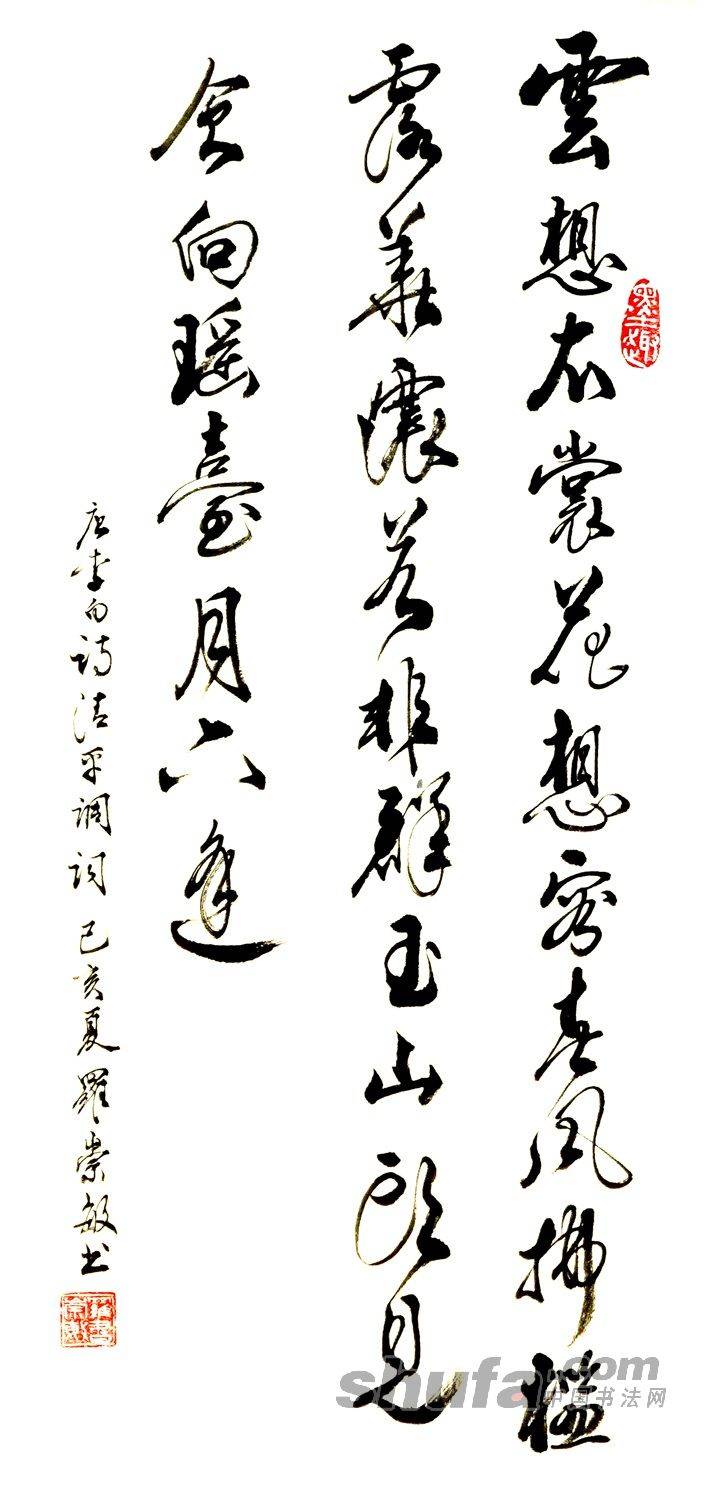 雲想衣裳花想容春风拂檻
露華濃若非群玉山头见
会向瑶臺月下逢
唐李白诗清平调词 己亥夏 羅崇敏书
墨趣
shufa.com
中国书法网